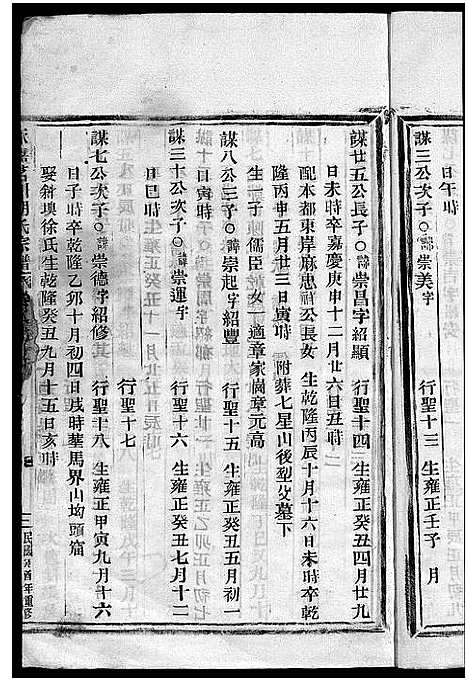 日午時
謀三公次子○諱崇美字　行聖十三　生雍正壬子　月
謀廿五公長子○諱崇昌字紹顯　行聖十四　生雍正癸丑四月廿九
日未時卒嘉慶庚申十二月廿六日丑時
配本都東岸麻忠祥公長女　生乾隆丙辰十月十六日未時卒乾
隆丙申五月廿三日寅時　附葬七星山後型父墓下
生一子儒臣　女一適章家崗章元高
謀八公三子○諱崇起字紹豐　行聖十五　生雍正癸丑五月初一
日寅時
謀三十公次子○諱崇運字　行聖十六　生雍正癸丑七月十二
日巳時
行聖十七
謀七公次子○諱崇德字紹修　行聖十八　生雍正甲寅九月十六
日子時卒乾隆乙卯十月初四日戌時葬馬界山坳頭窟
娶徐氏生乾隆癸丑九月十五日亥時
氏宗譜
民國　酉年重修